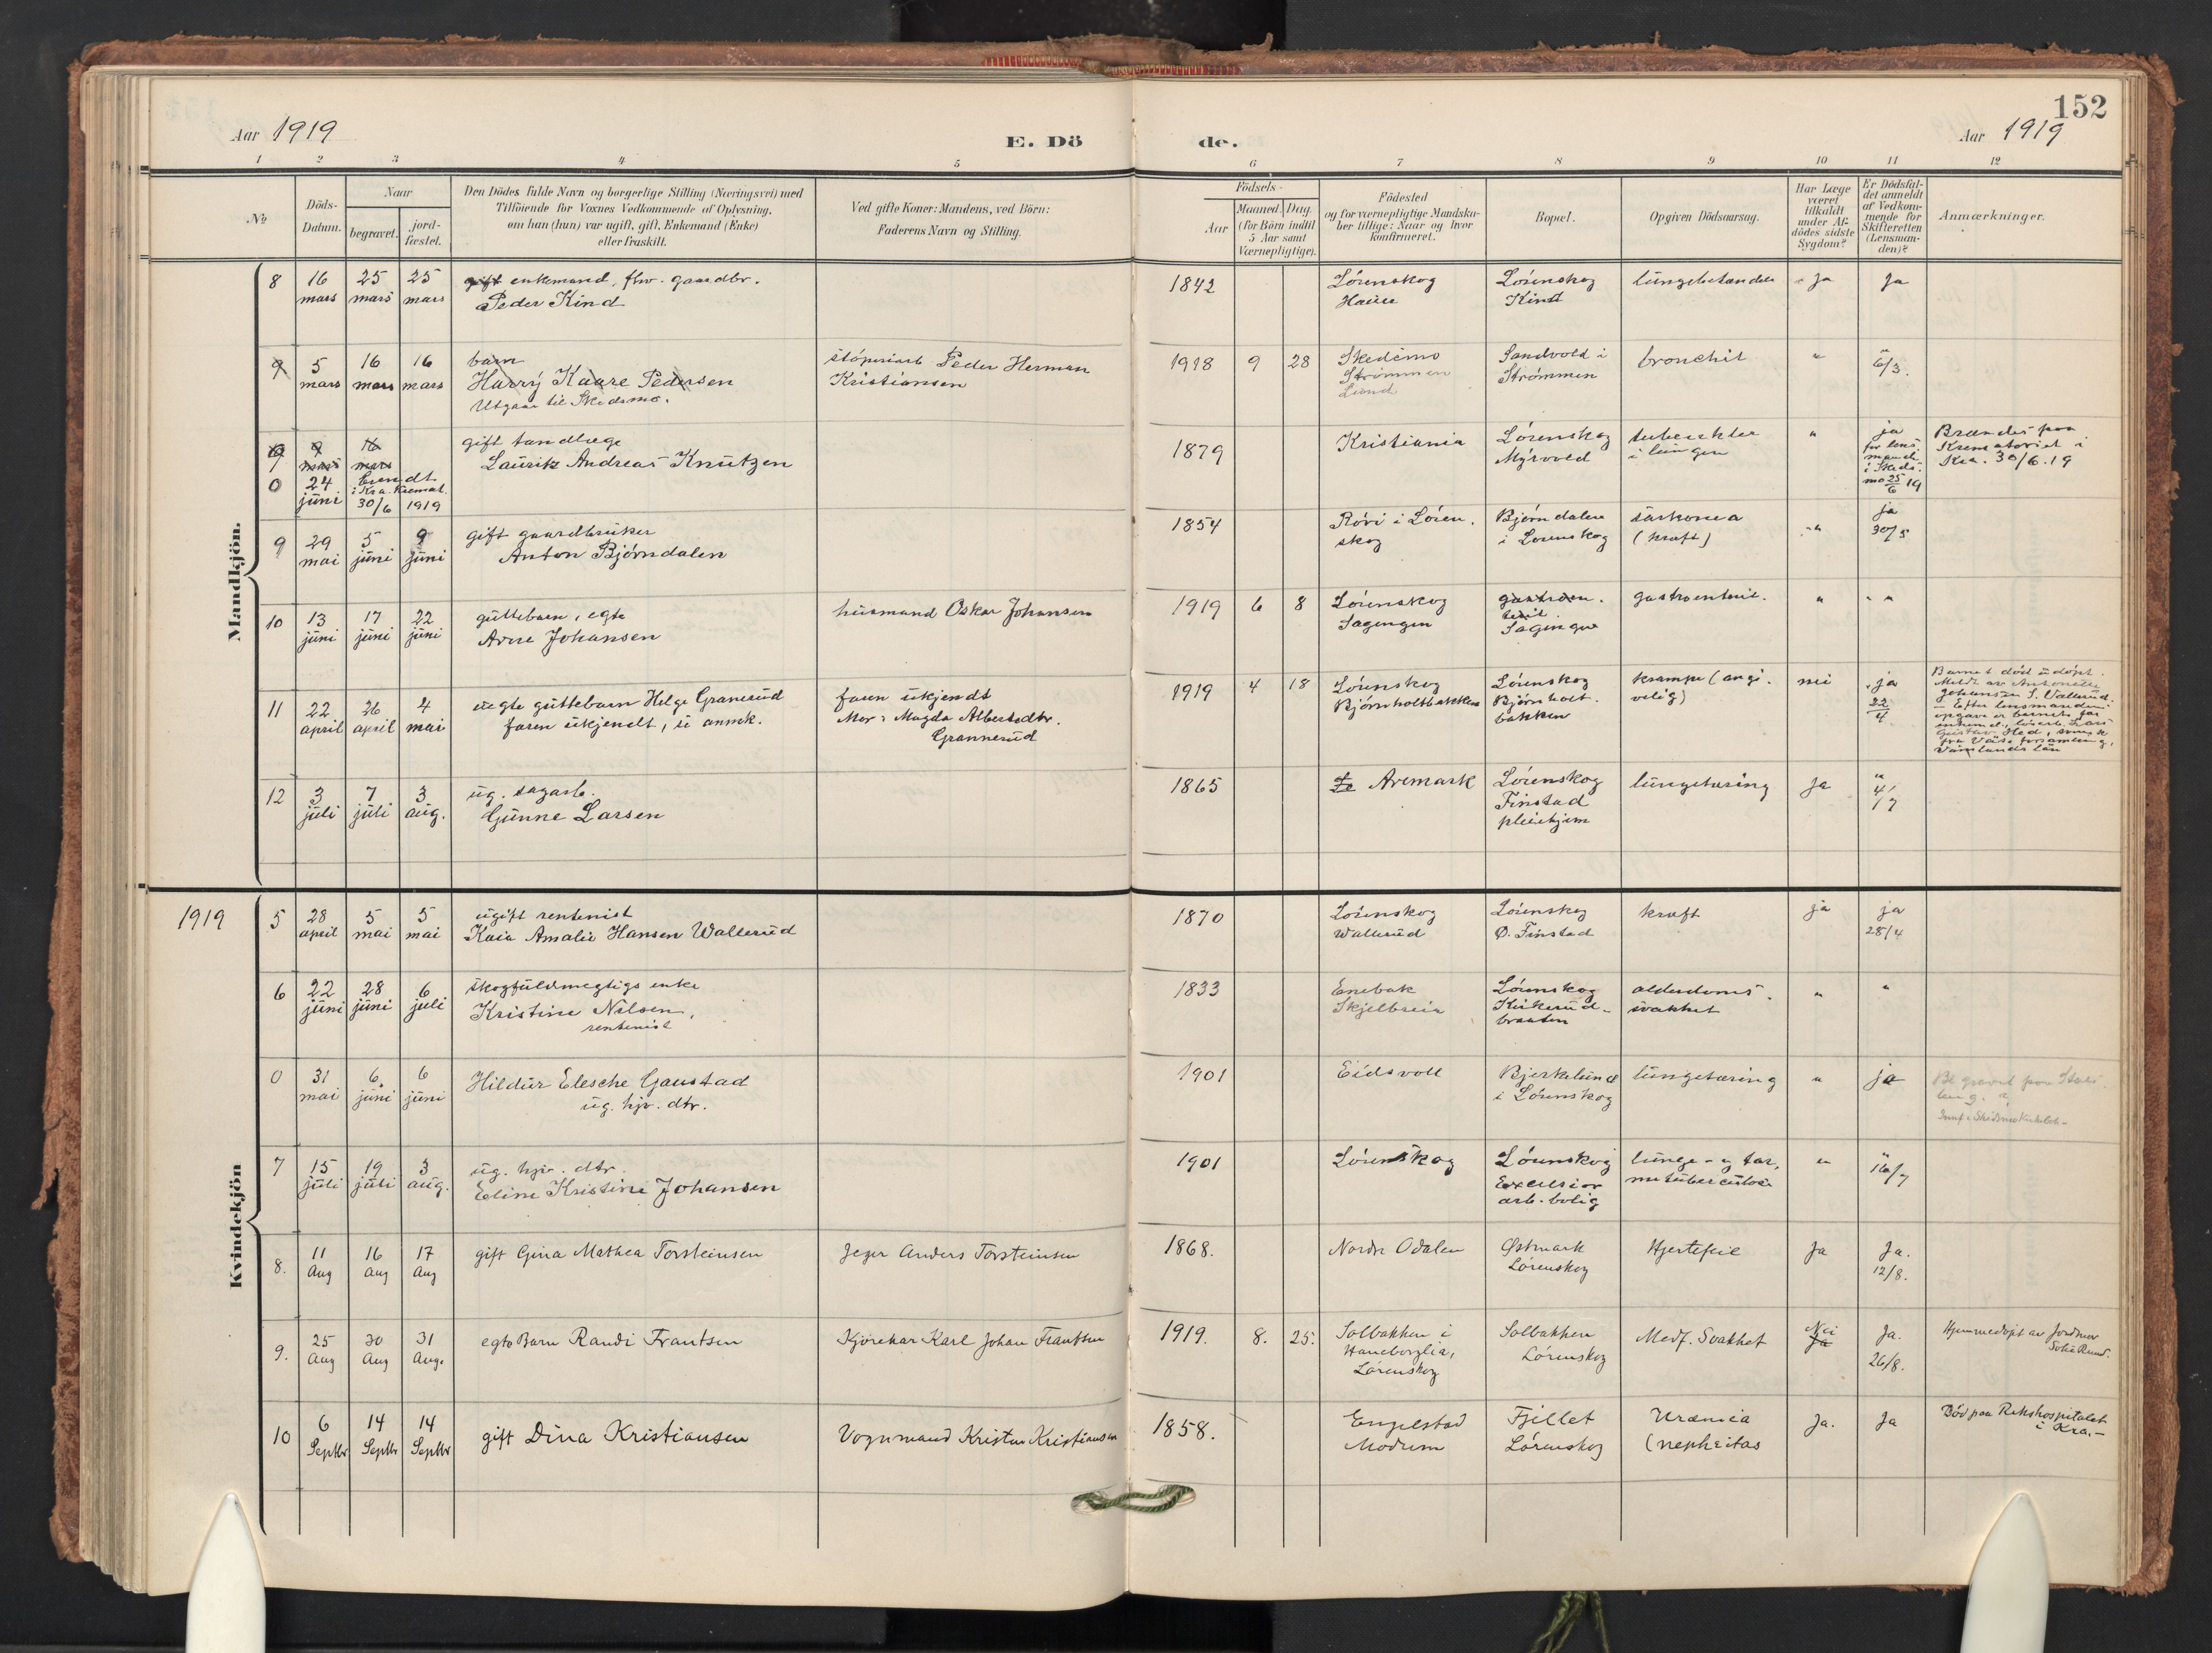 152
Aar 1919
E. Dö
de.
Aar 1919
1 2 3 4 5 6 7 8 9 10 11 12
№
Döds-
Datum.
Naar
begravet.
jord-
fæstet.
Den Dödes fulde Navn og borgerlige Stilling (Næringsvei) med
Tilföiende for Voxnes Vedkommende af Oplysning,
om han (hun) var ugift, gift, Enkemand (Enke)
eller fraskilt.
Ved gifte Koner: Mandens, ved Börn:
Faderens Navn og Stilling.
Födsels-
Aar
Maaned. Dag.
(for Börn indtil
5 Aar samt
Værnepligtige).
Födested
og for værnepligtige Mandska-
ber tillige: Naar og hvor
konfirmeret.
Bopæl.
Opgiven Dödsaarsag.
Har Læge
været
tilkaldt
under Af-
dödes sidste
Sygdom?
Er Dödsfal-
det anmeldt
af Vedkom-
mende for
Skifteretten
(Lensman-
den)?
Anmærkninger.
Mandkjön.
8
16
mars
25
mars
25
mars
gift enkemand, fhv. gaardbr.
Peder Kind
1842
Lørenskog
Lørenskog
Kind
ja
ja
9
5
mars
16
mars
16
mars
barn
Harry Kaare Pedersen
Utgaar til Skedsmo.
støperiarb Peder Herman
Kristiansen
1918 9 28
Skedsmo
Strømmen
Lund
Sandvold i
Strømmen
bronchit
"
"
6/3.
9
mars
16
mars
0
24
juni
brendt
i Kra. Kremat.
30/6 1919
gift tandlæge
Lauritz Andreas Knutzen
1879
Kristiania
Lørenskog
Myrvold
tuberkler
i lungen
"
ja
for lens
mand
i Skeds-
mo 25/6 19
Brændes paa
Krematoriet i
Kra. 30/6.19
9
29
mai
5
juni
9
juni
gift gaardbruker
Anton Bjørndalen
1854
Røvi i Løren.
skog
Bjørndalen
i Lørenskog
sarkoma
(kræft)
"
ja
30/5
10
13
juni
17
juni
22
juni
guttebarn, egte
Arne Johansen
husmand Oskar Johansen
1919 6 8
Lørenskog
Sagengen
gastroen.
terit.
Sagengen
gastroenterit.
"
"
11
22
april
26
april
4
mai
uegte guttebarn Helge Granerud
faren ukjendt, u annk.
faren ukjendt
Mor: Magda Albertsdtr.
Grannerud
1919 4 18
Lørenskog
Bjørnholtbakken
Lørenskog
Bjørnholt-
bakken
krampe (angi-
velig)
nei
ja
22/4
Barnet død udøpt.
Meldt av Antonette
Johansen S. Wallerud.
Efter lensmandens
opgave er barnets far
Vårmlands län
12
3
juli
7
juli
3
aug.
ug. sagarb.
Gunne Larsen
1865
Aremark
Lørenskog
Finstad
pleiehjem
lungetæring
ja
"
4/7
1919
Kvindekjön
5
28
april
5
mai
5
mai
ugift rentenist
Kaia Amalie Hansen Wallerud
1870
Lørenskog
Wallerud
Lørenskog
Ø. Finstad
kræft
ja
ja
28/4
6
22
juni
28
juni
6
juli
skogfuldmegtigs enke
Kristine Nilsen,
rentenist
1833
Enebak
Skjelbreia
Lørenskog
Kirkerud-
braaten
alderdoms-
svakhet
"
"
0
31
mai
6
juni
6
juni
Hildur Elesche Gaustad
ug. hjv. dtr.
1901
Eidsvoll
Bjerkelund
i Lørenskog
lungetæring
"
ja
7
15
juli
19
juli
3
aug.
ug. hjv. dtr.
Eline Kristine Johansen
1901
Lørenskog
Lørenskog
Excelsior
arb. bolig
lunge- og tar,
"
"
16/7
8.
11
Aug
16
Aug
17
Aug
gift Gina Mathea Torsteinsen
Jeger Anders Torsteinsen
1868.
Nordre Odalen
Østmark
Lørenskog
Hjertefeil
Ja
Ja.
12/8.
9.
25
Aug
30
Aug
31
Aug.
egte Barn Randi Frantsen
Kjørekar Karl Johan Frantsen
1919. 8. 25.
Solbakken i
Haneborglia,
Lørenskog
Solbakken
Lørenskog
Medf. Svakhet
Nei
Ja
Ja.
26/8.
Hjemmedøpt av Jordmor
Sofie Ruud.
10
6
Septbr
14
Septbr
14
Septbr
gift Dina Kristiansen
Vognmand Kristen Kristiansen
1858.
Engelstad
Modum
Fjellet
Lørenskog
Uræmia
(nephritas
Ja.
Ja
Død paa Rikshospitalet
i Kra.-